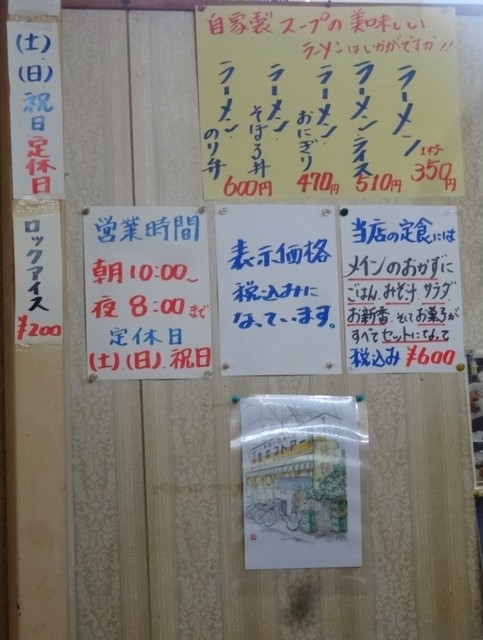 (土)(日)祝日定休日
ロックアイス
¥200
自家製スープの美味しい
ラーメンはいかがですか!!
ラーメン 1杯 350円
ラーメン、ライス 510円
ラーメン、おにぎり 470円
ラーメン、そぼろ丼
ラーメン、のり弁
600円
営業時間
朝10:00〜
夜8:00まで
定休日
(土)(日)祝日
表示価格
税込みに
なっています。
当店の定食には
メインのおかずに
ごはん、みそ汁、サラダ
お新香、そしてお菓子が
すべてセットになって
税込み¥600
ストアー